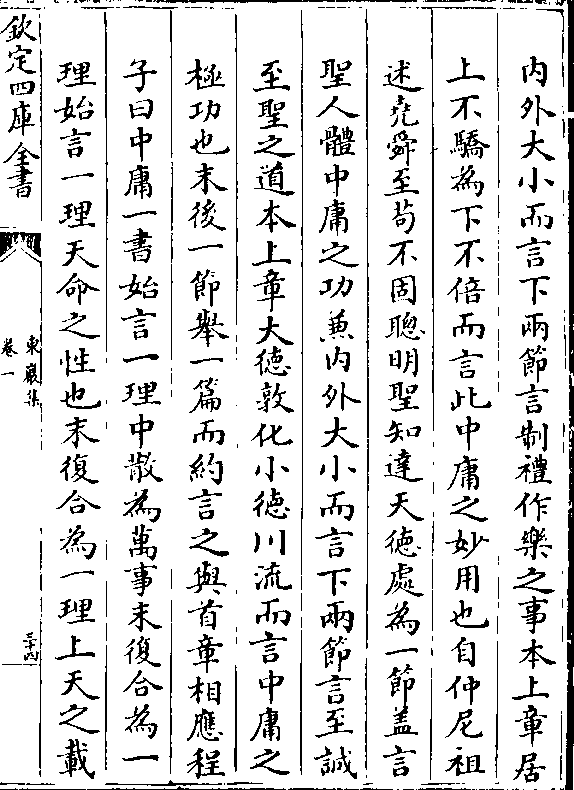 内外大小而言下兩節言制禮作樂之事本上章居
上不驕為下不倍而言此中庸之妙用也自仲尼祖
述堯舜至茍不固聰明聖知達天徳處為一節盖言
聖人體中庸之功兼内外大小而言下兩節言至誠
至聖之道本上章大徳敦化小徳川流而言中庸之
極功也末後一節舉一篇而約言之與首章相應程
子曰中庸一書始言一理中散為萬事末復合為一
理始言一理天命之性也末復合為一理上天之載
欽定四庫全書
東巖集
卷一
三十四